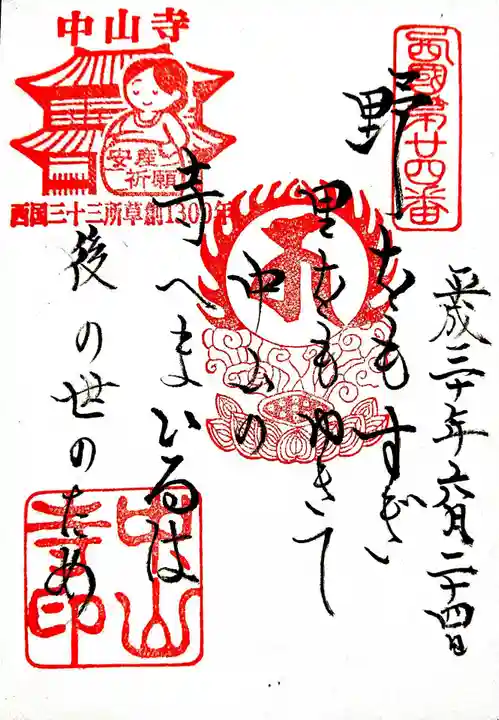 西國第廿四番
平成三十年六月二十四日
野をもすぎ
里をもゆきて
中山の
寺へまいるは
後の世のため
中山寺
安産
祈願
西国三十三所草創1300年
中山
寺印